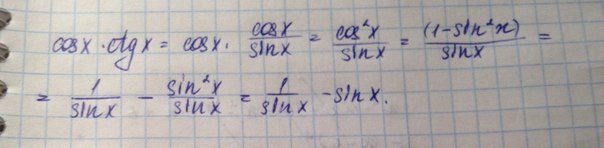 cosx · ctgx = cosx · cosx/sinx = cos²x/sinx = (1-sin²x)/sinx =
= 1/sinx - sin²x/sinx = 1/sinx - sinx.